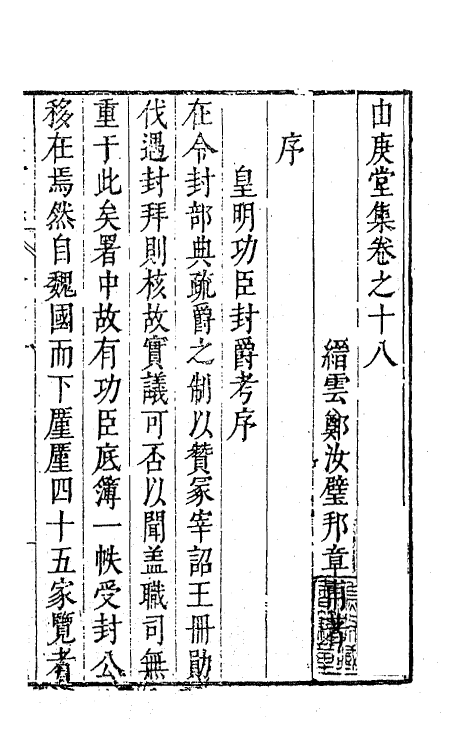 由庚堂集卷之十八
縉雲鄭汝璧邦章甫著
序
皇明功臣封爵考序
在令封部典疏爵之制以贊冢宰詔王冊勛
伐遇封拜則核故實議可否以聞盖職司無
重于此矣署中故有功臣底簿一帙受封公
移在焉然自魏國而下廑廑四十五家覽者